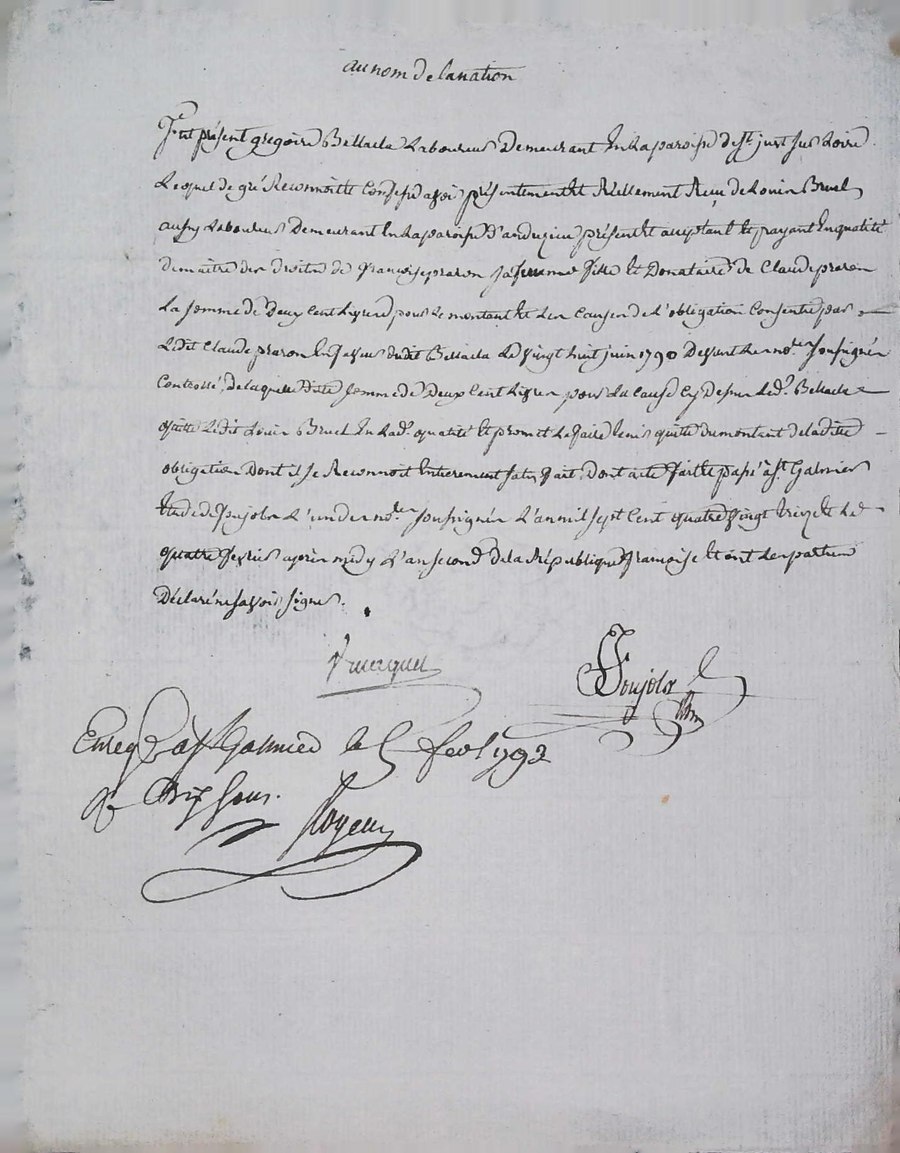 au nom de la nation
Fut présent gregoire Bellacla Laboureur Demeurant En la paroisse de St just sur Loire
Lequel de gré Reconnoit et Confesse avoir présentement et Réellement Reçu de Louis Bruel
aussy Laboureur Demeurant En la paroisse d'andrezieu présent et acceptant et payant En qualité
de maitre des droits de françoise praron sa femme fille et Donataire de Claude praron
La somme de Deux Cent Livres pour le montant et les Causes de L'obligation Consentie par
Ledit Claude praron En faveur dudit Bellacla Le vingt huit juin 1790 Devant Les nores soussignés
Controllé, De laquelle ditte somme de Deux Cent Livres pour La Cause Cy Dessus Led. Bellacla
quitte Ledit Louis Bruel En lad. qualité Et promet Le faire tenir quitte du montant de laditte
obligation Dont il se Reconnoit Entierement satisfait, Dont acte fait et passé à St Galmier
Etude de Poujols L'un des nores soussignés L'an mil sept Cent quatre vingt treize et Le
quatre fevrier après midy L'an second de la République françoise Et ont Les parties
Déclaré ne savoir signer.
Poujols
Enreg à St Galmier le 5 fevr 1793
Rx Dix sous.